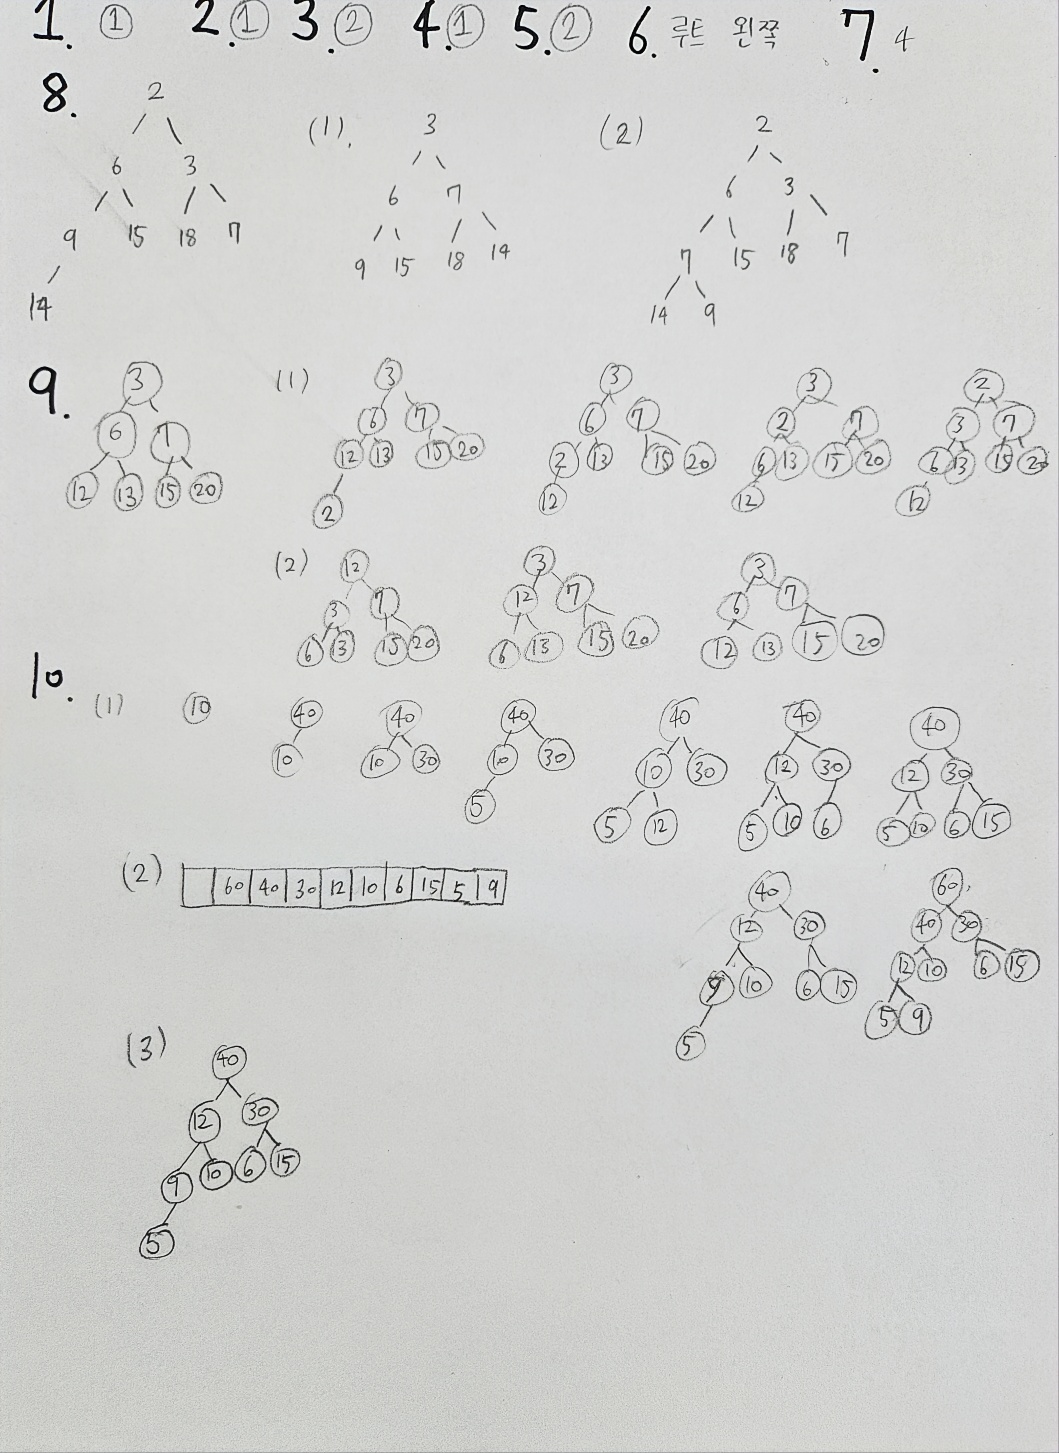 1. ① 2. ① 3. ② 4. ① 5. ② 6. 루트 왼쪽 7. 4
8.
2
6 3
9 15 18 7
14
(1).
3
6 7
9 15 18 14
(2)
2
6 3
7 15 18 7
14 9
9.
3
6 7
12 13 15 20
(1)
3
6 7
12 13 15 20
2
3
6 7
2 13 15 20
12
3
2 7
6 13 15 20
12
2
3 7
6 13 15 20
12
(2)
12
3 7
6 13 15 20
3
12 7
6 13 15 20
3
6 7
12 13 15 20
10.
(1)
10
40
10
40
10 30
40
10 30
5
40
10 30
5 12
40
12 30
5 10 6
40
12 30
5 10 6 15
40
12 30
9 10 6 15
5
60
40 30
12 10 6 15
5 9
(2)
60 40 30 12 10 6 15 5 9
(3)
40
12 30
9 10 6 15
5